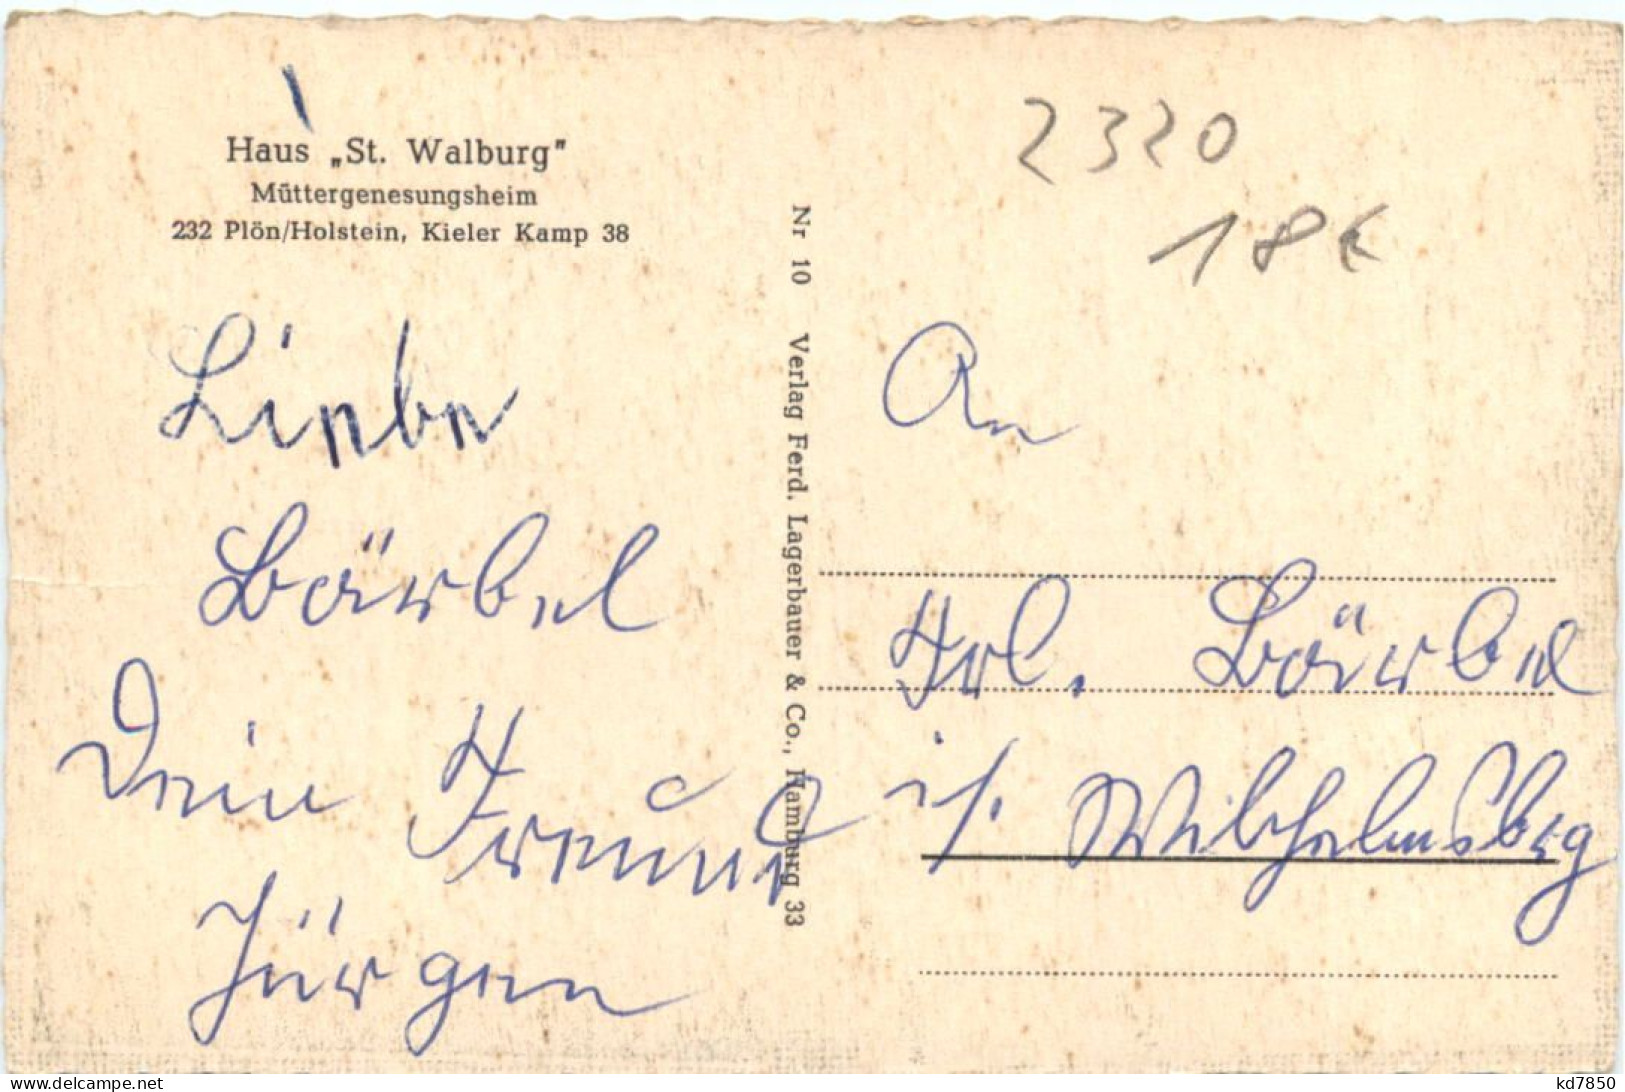 Haus „St. Walburg"
Müttergenesungsheim
232 Plön/Holstein, Kieler Kamp 38
Liebe
Bärbel
Dein Freund
Jürgen
Nr 10 Verlag Ferd. Lagerbauer & Co., Hamburg 33
2320
18€
An
Frl. Bärbel
i/. Wilhelmsbg
www.delcampe.net
kd7850